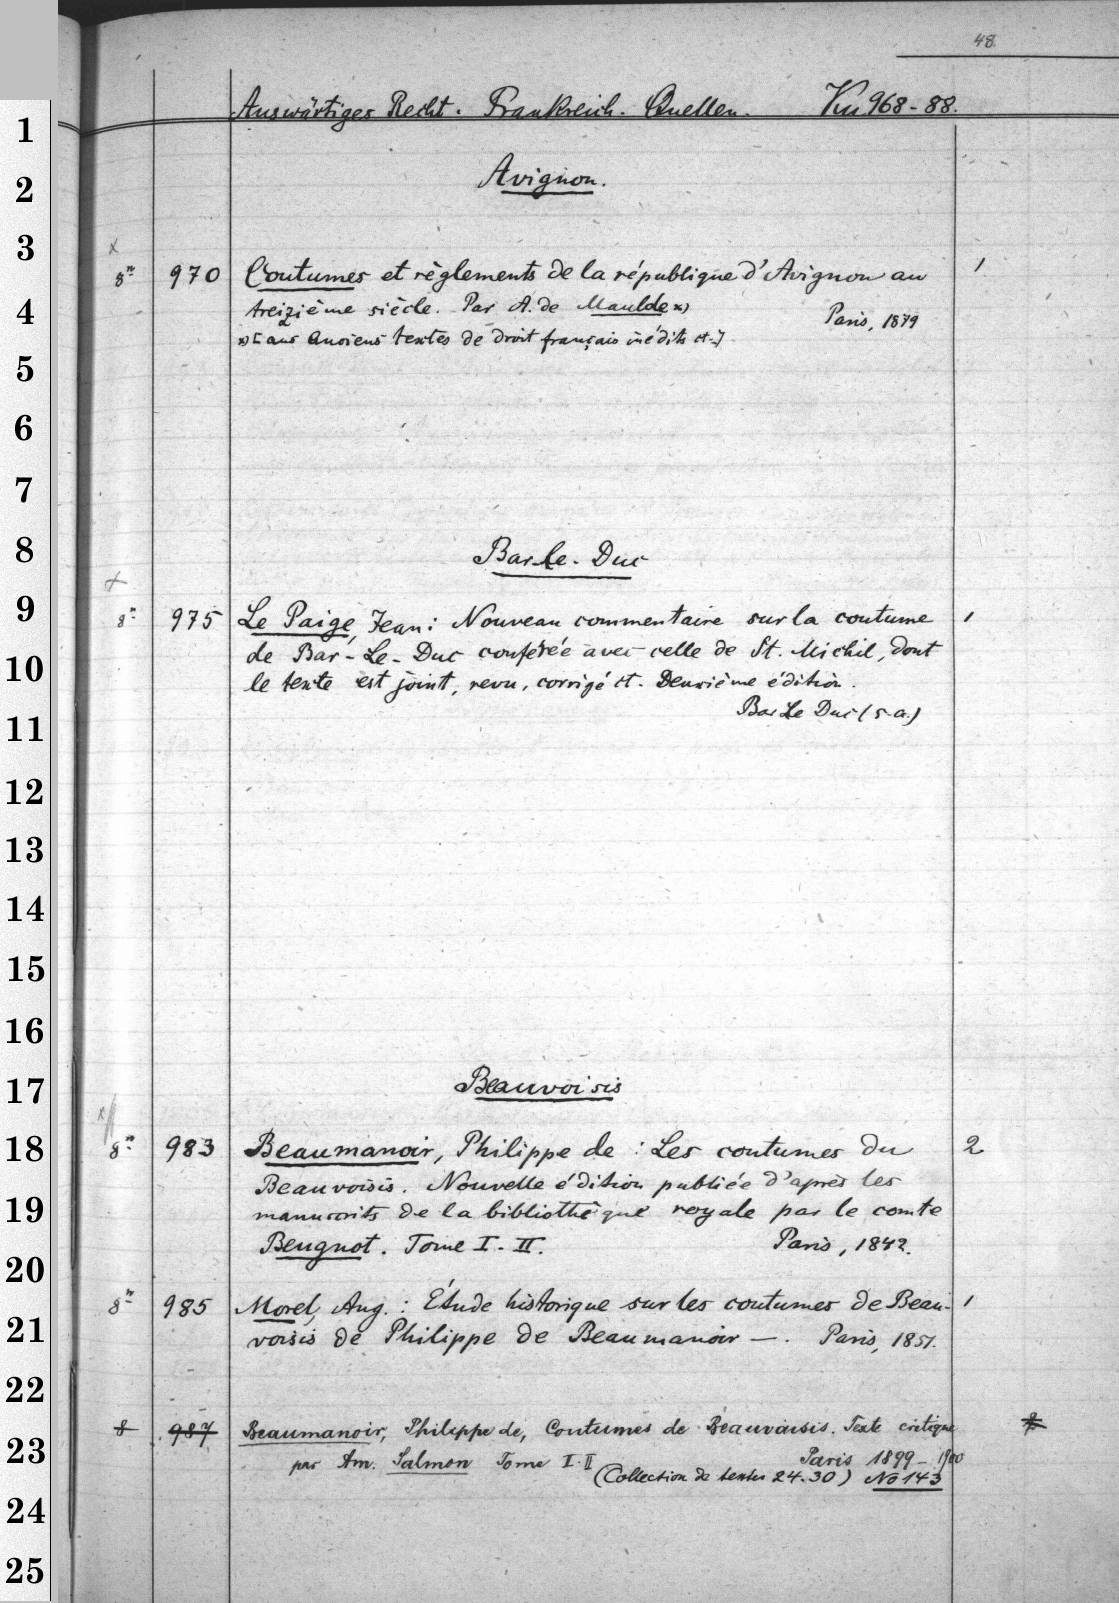 48
Auswärtiges Recht. Frankreich. Quellen. Kn 968-88.
1
Avignon.
2
3
8° 970 Coutumes et règlements de la république d'Avignon au 1
4
treizième siècle. Par A. de Maulde x) Paris, 1879
x) [aus Anciens textes de droit français inédits et.]
5
6
7
8
Bar-le-Duc
9
8° 975 Le Paige, Jean: Nouveau commentaire sur la coutume 1
10
de Bar-Le-Duc conférée avec celle de St. Michil, dont
le texte est joint, revu, corrigé et. Deuxième édition.
Bar Le Duc (s.a.)
11
12
13
14
15
16
17
Beauvoisis
18
8° 983 Beaumanoir, Philippe de: Les coutumes du 2
Beauvoisis. Nouvelle édition publiée d'après les
19
manuscrits de la bibliothèque royale par le comte
20
Beugnot. Tome I-II. Paris, 1842.
8° 985 Morel, Aug.: Étude historique sur les coutumes de Beau- 1
21
voisis de Philippe de Beaumanoir —. Paris, 1851.
22
8 987 Beaumanoir, Philippe de, Coutumes de Beauvaisis. Texte critique 2
23
par Am. Salmon Tome I-II Paris 1899-1900
(Collection de textes 24.30) No 143
24
25